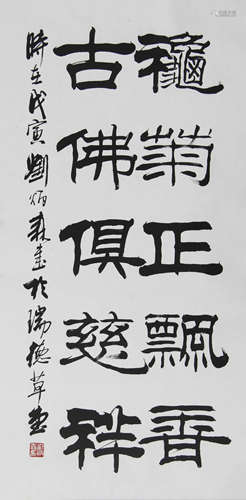 龝菊正飄香
古佛俱慈祥
時在戊寅劉炳森書於瑞德草堂